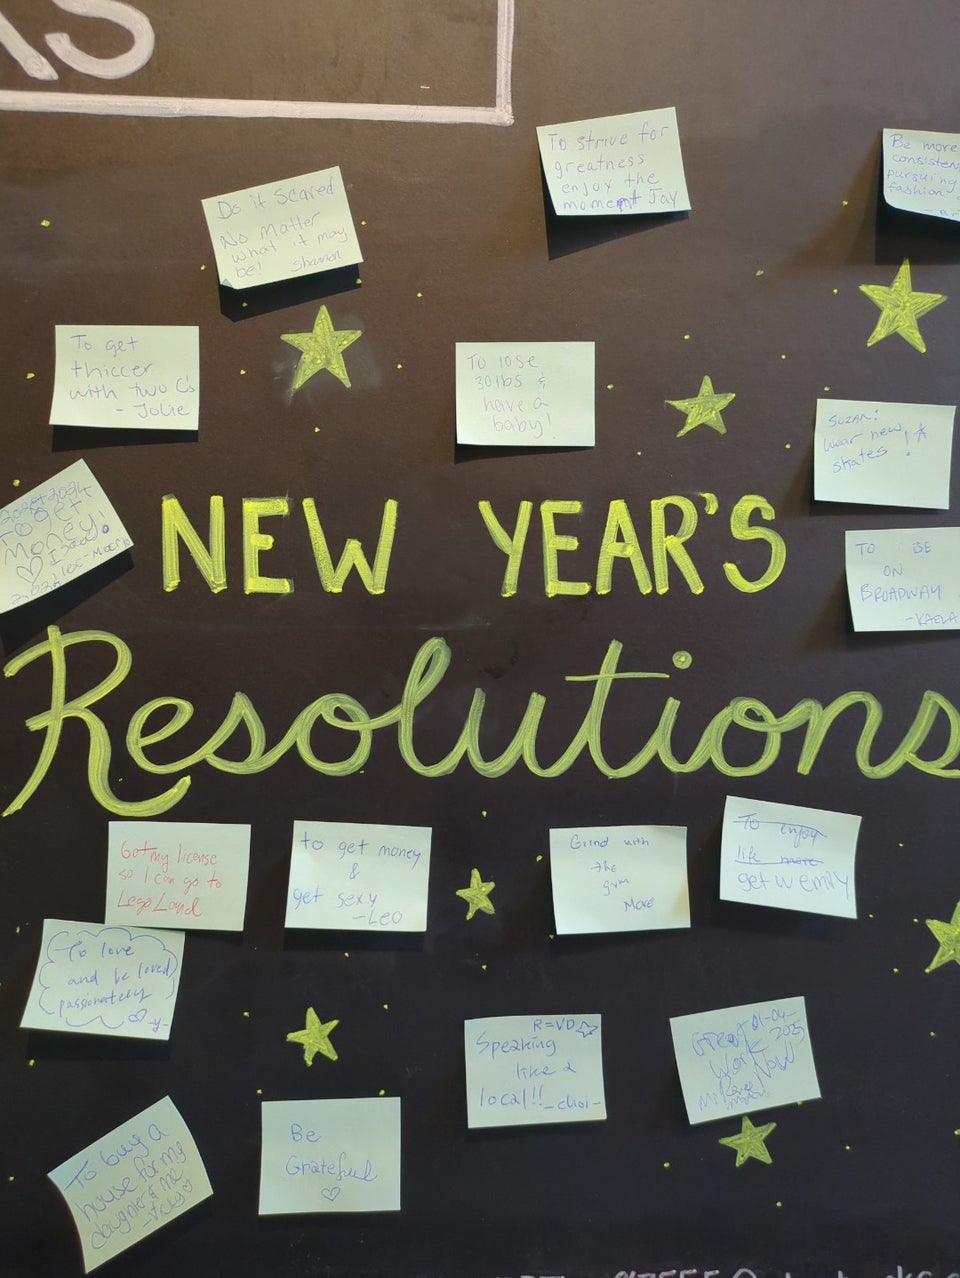 Do it Scared
No matter
what it may
be! Shannon
To strive for
greatness
enjoy the
moment Jay
Be more
pursuing
fashion
To get
thiccer
with two C's
- Jolie
To lose
30lbs &
have a
baby!
SUZAN:
Wear new
skates !
To get
money!
TO BE
ON
BROADWAY
-KAELA
NEW YEAR'S
Resolutions
Got my license
so I can go to
Lego Land
to get money
&
get sexy
-Leo
Grind with
the
gym
More
To enjoy
life more
get w emily
To love
and be loved
passionately
-y-
R=VD
Speaking
like a
local!! -choi-
Great 01-04-
2025
Work
Now
To buy a
house for my
daughter & me
-Vicky
Be
Grateful